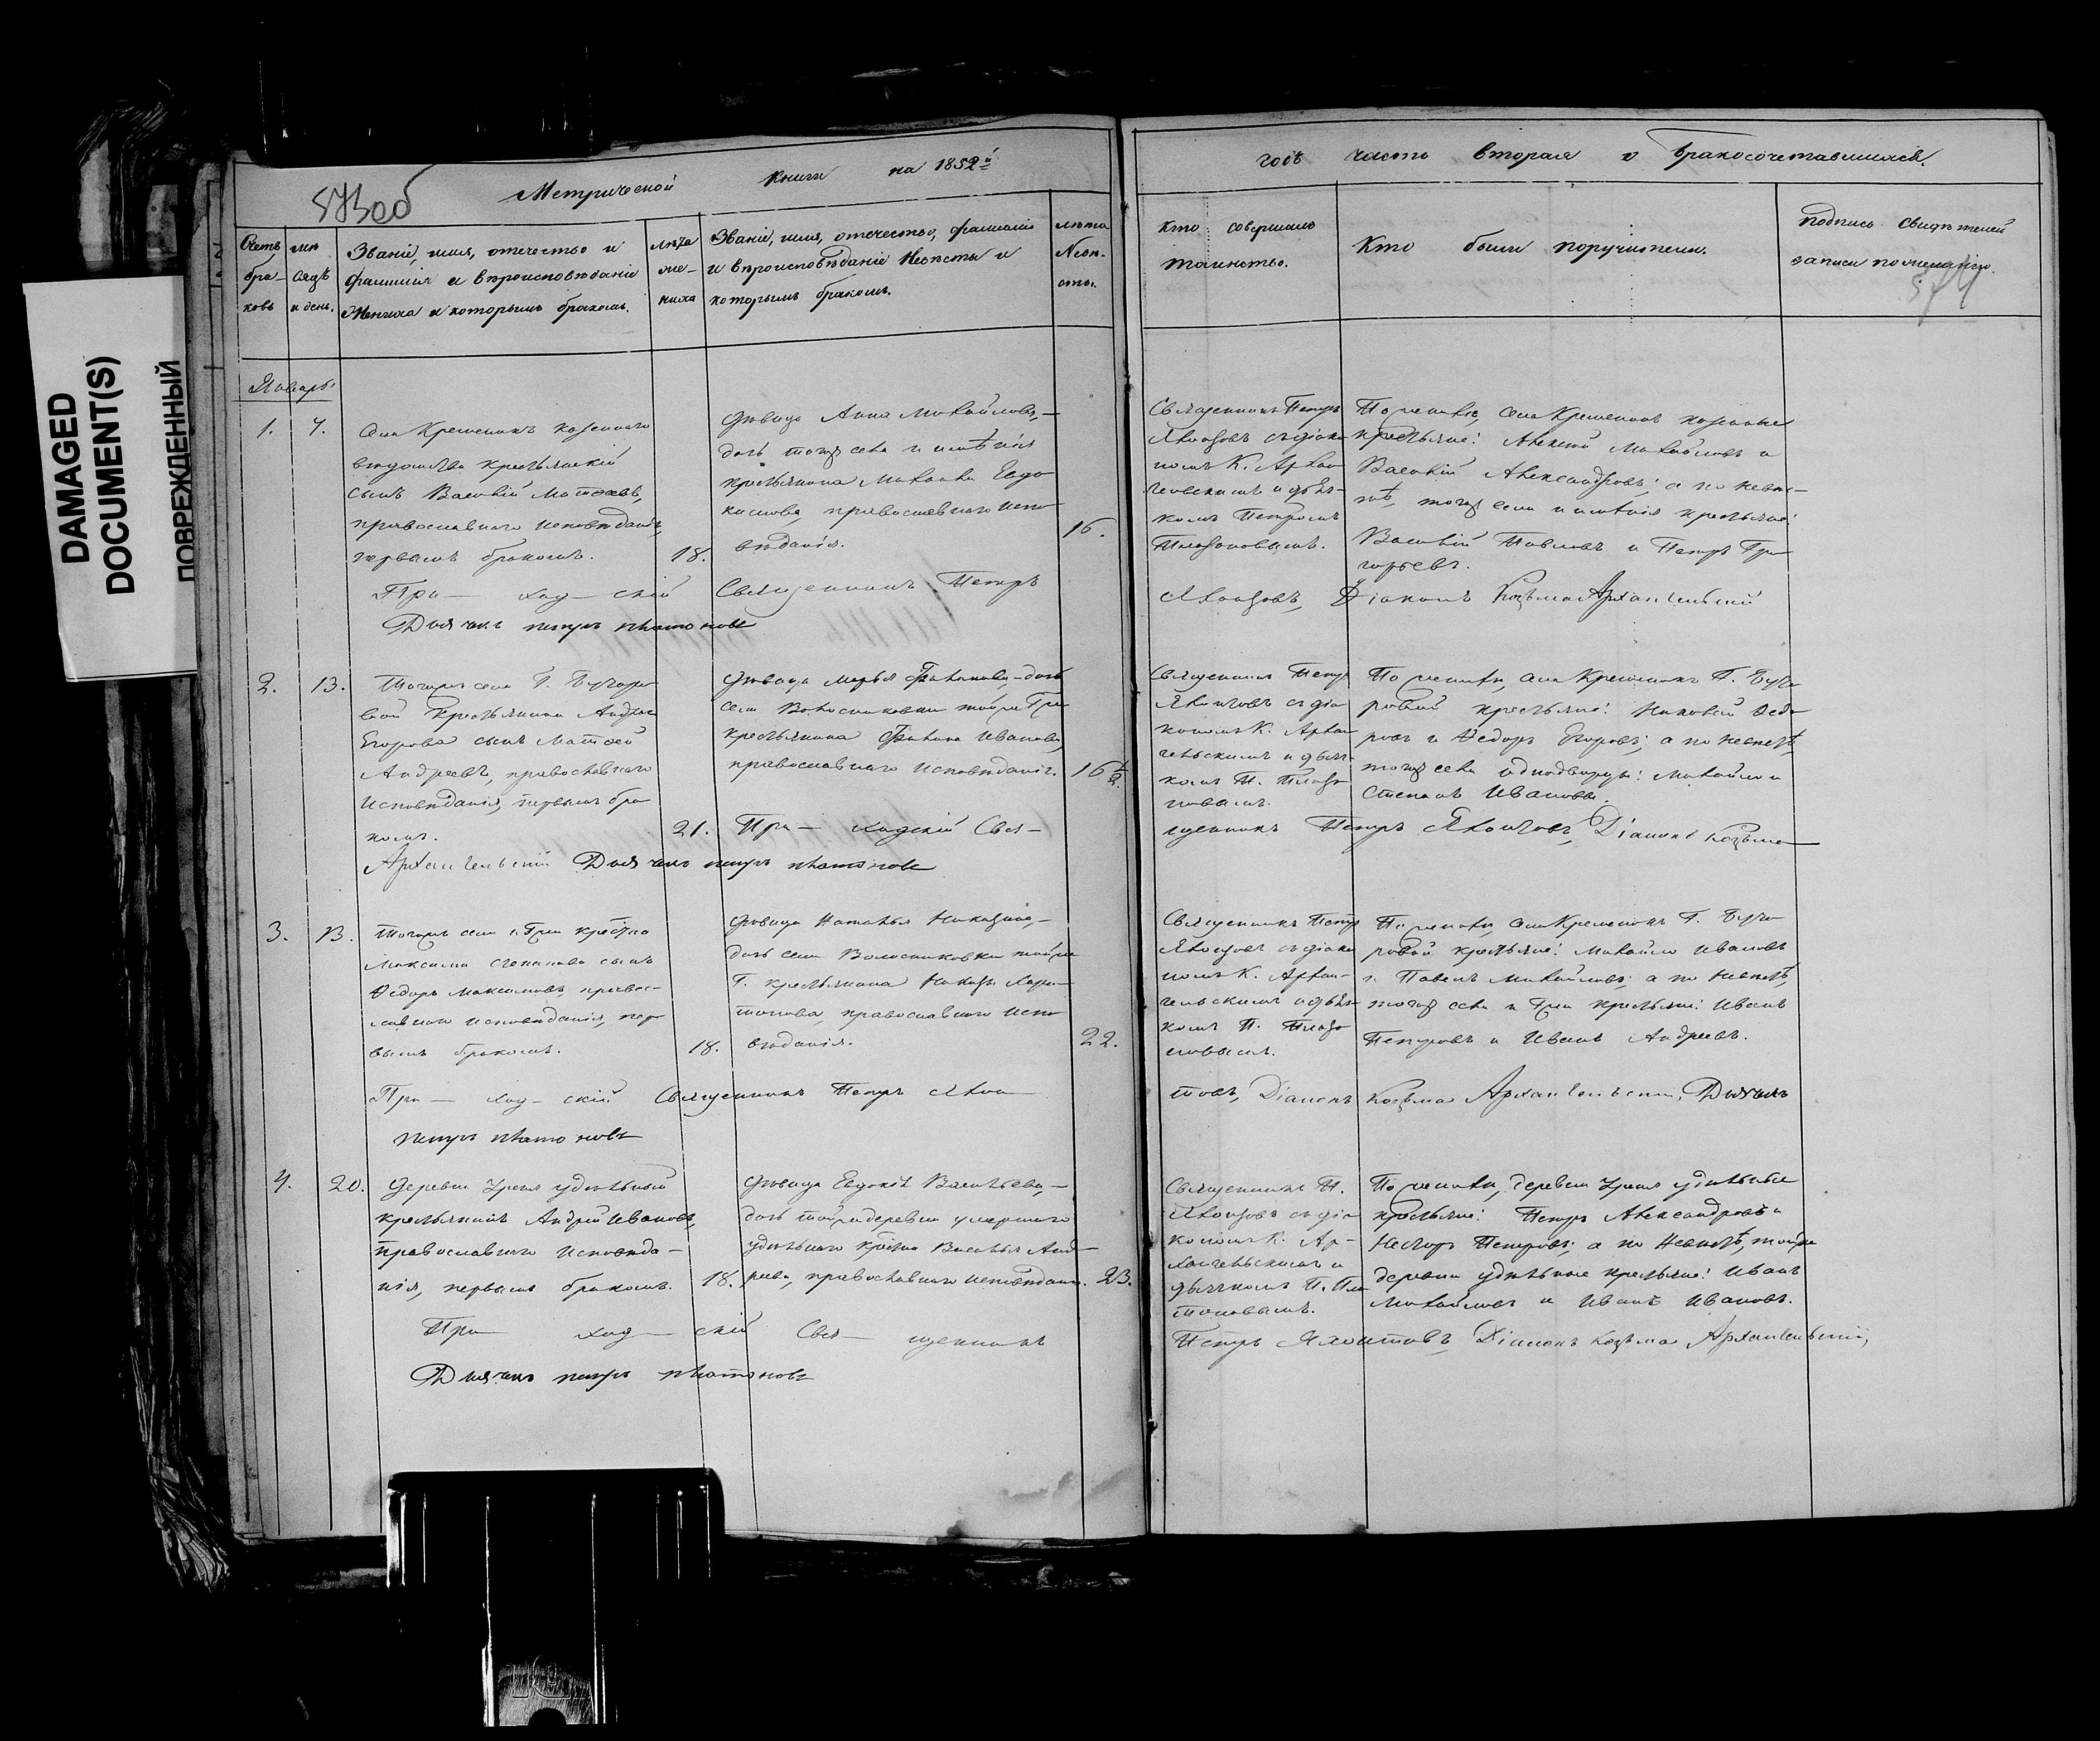 DAMAGED
DOCUMENT(S)
ПОВРЕЖДЕННЫЙ
573об
Метрической книги на 1852й
Счетъ бра-ковъ
мѣ сяцъ и день.
Званіе, имя, отечество и
фамилія и вѣроисповѣданіе
Жениха и которымъ бракомъ.
лѣта же-ниха
Званіе, имя, отечество, фамилія
и вѣроисповѣданіе Невѣсты и
которымъ бракомъ.
лѣта Невѣ-сты.
годъ часть вторая о бракосочетавшихся.
Кто совершалъ
таинство.
Кто были поручители.
подпись свидѣтелей
записи по желанію.
574
Январь
1.
7.
Села Кременокъ казеннаго
вѣдомства крестьянскій
сынъ Василій Матвѣевъ,
православнаго исповѣданія,
первымъ бракомъ.
18.
дѣвица Анна Михайлова,-
дочь тогожъ села и имѣнія
крестьянина Михаила Евдо
кимова, православнаго испо
вѣданія.
16.
Священникъ Петръ
съ діако
номъ К.Архан
гельскимъ и дьяч-
комъ Петромъ
Платоновымъ.
По женихѣ, села Кременокъ казенные
крестьяне: Алексѣй Михайловъ и
Василій Александровъ; а по невѣс-
тѣ, тогожъ села и имѣнія крестьяне:
Василій Павловъ и Петръ Гри
горьевъ.
При- ход-скій Священникъ Петръ
Діаконъ Козьма Архангельскій
Дьячекъ петръ платоновъ
2.
13.
Тогожъ села Г.
крестьянина Андрея
Егорова сынъ Матвей
Андреевъ, православнаго
исповѣданія, первымъ бра
комъ.
21.
дѣвица Марья -дочь
села Волосниковки тойже Гжи
крестьянина Иванова,
православнаго исповѣданія.
16½.
Священникъ Петръ
съ діа
кономъ К.Архан
гельскимъ и дьяч-
комъ П. Плато
новымъ.
По женихѣ, села Кременокъ Г.
крестьяне: Ѳедо
ровъ и Ѳедоръ Егоровъ; а по невѣстѣ,
тогожъ села однодворцы: Михайло и
Степанъ Ивановы.
При- ходскій Свя-
щенникъ Петръ Діаконъ Козьма
Архангельскій Дьячекъ петръ платоновъ
3.
13.
Тогожъ села и Гжи крестьянина
Максима Степанова сынъ
Ѳедоръ Максимовъ, правос-
лавнаго исповѣданія, пер
вымъ бракомъ.
18.
дѣвица Наталья
дочь села Волосниковки тойже
Г. крестьянина Хари-
тонова, православнаго испо
вѣданія.
22.
Священникъ Петръ
съ діако
номъ К.Архан-
гельскимъ и дьяч
комъ П. Плато
новымъ.
По женихѣ, села Кременокъ Г.
крестьяне: Михайло Ивановъ
и Павелъ Михайловъ; а по невѣстѣ,
тогожъ села и Гжи крестьяне: Иванъ
Петровъ и Иванъ Андреевъ.
При- ход-скій Священникъ Петръ
Діаконъ Козьма Архангельскій, Дьячекъ
петръ платоновъ
4.
20.
деревни удѣльный
крестьянинъ Андрей Ивановъ,
православнаго исповѣда-
нія, первымъ бракомъ.
18.
дѣвица Евдокія Васильева,-
дочь тойже деревни умершаго
удѣльнаго крестьянина Василья Анд-
реева, православнаго исповѣданія.
23.
Священникъ П.
съ діа
кономъ К. Ар-
хангельскимъ и
дьячкомъ П. Пла
тоновымъ.
По женихѣ, деревни удѣльные
крестьяне: Петръ Александровъ и
Несторъ Петровъ; а по невѣстѣ, тойже
деревни удѣльные крестьяне: Иванъ
Михайловъ и Иванъ Ивановъ.
При- ход-скій Свя-щенникъ
Петръ Діаконъ Козьма Архангельскій,
Дьячекъ петръ платоновъ